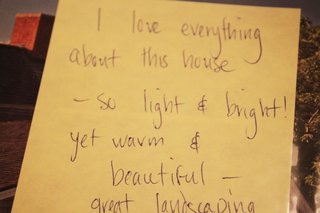 I love everything
about this house
- so light & bright!
yet warm &
beautiful -
great landscaping